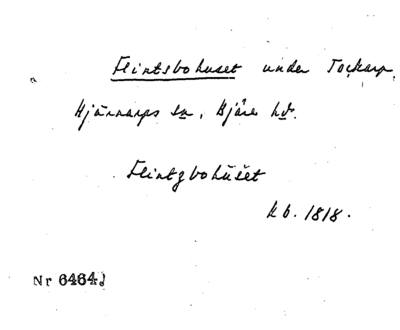 Flintsbohuset under Tockarp,
Hjärnarps sn, Bjäre hd.
Flintzbohuset
kb. 1818.
Nr 6464